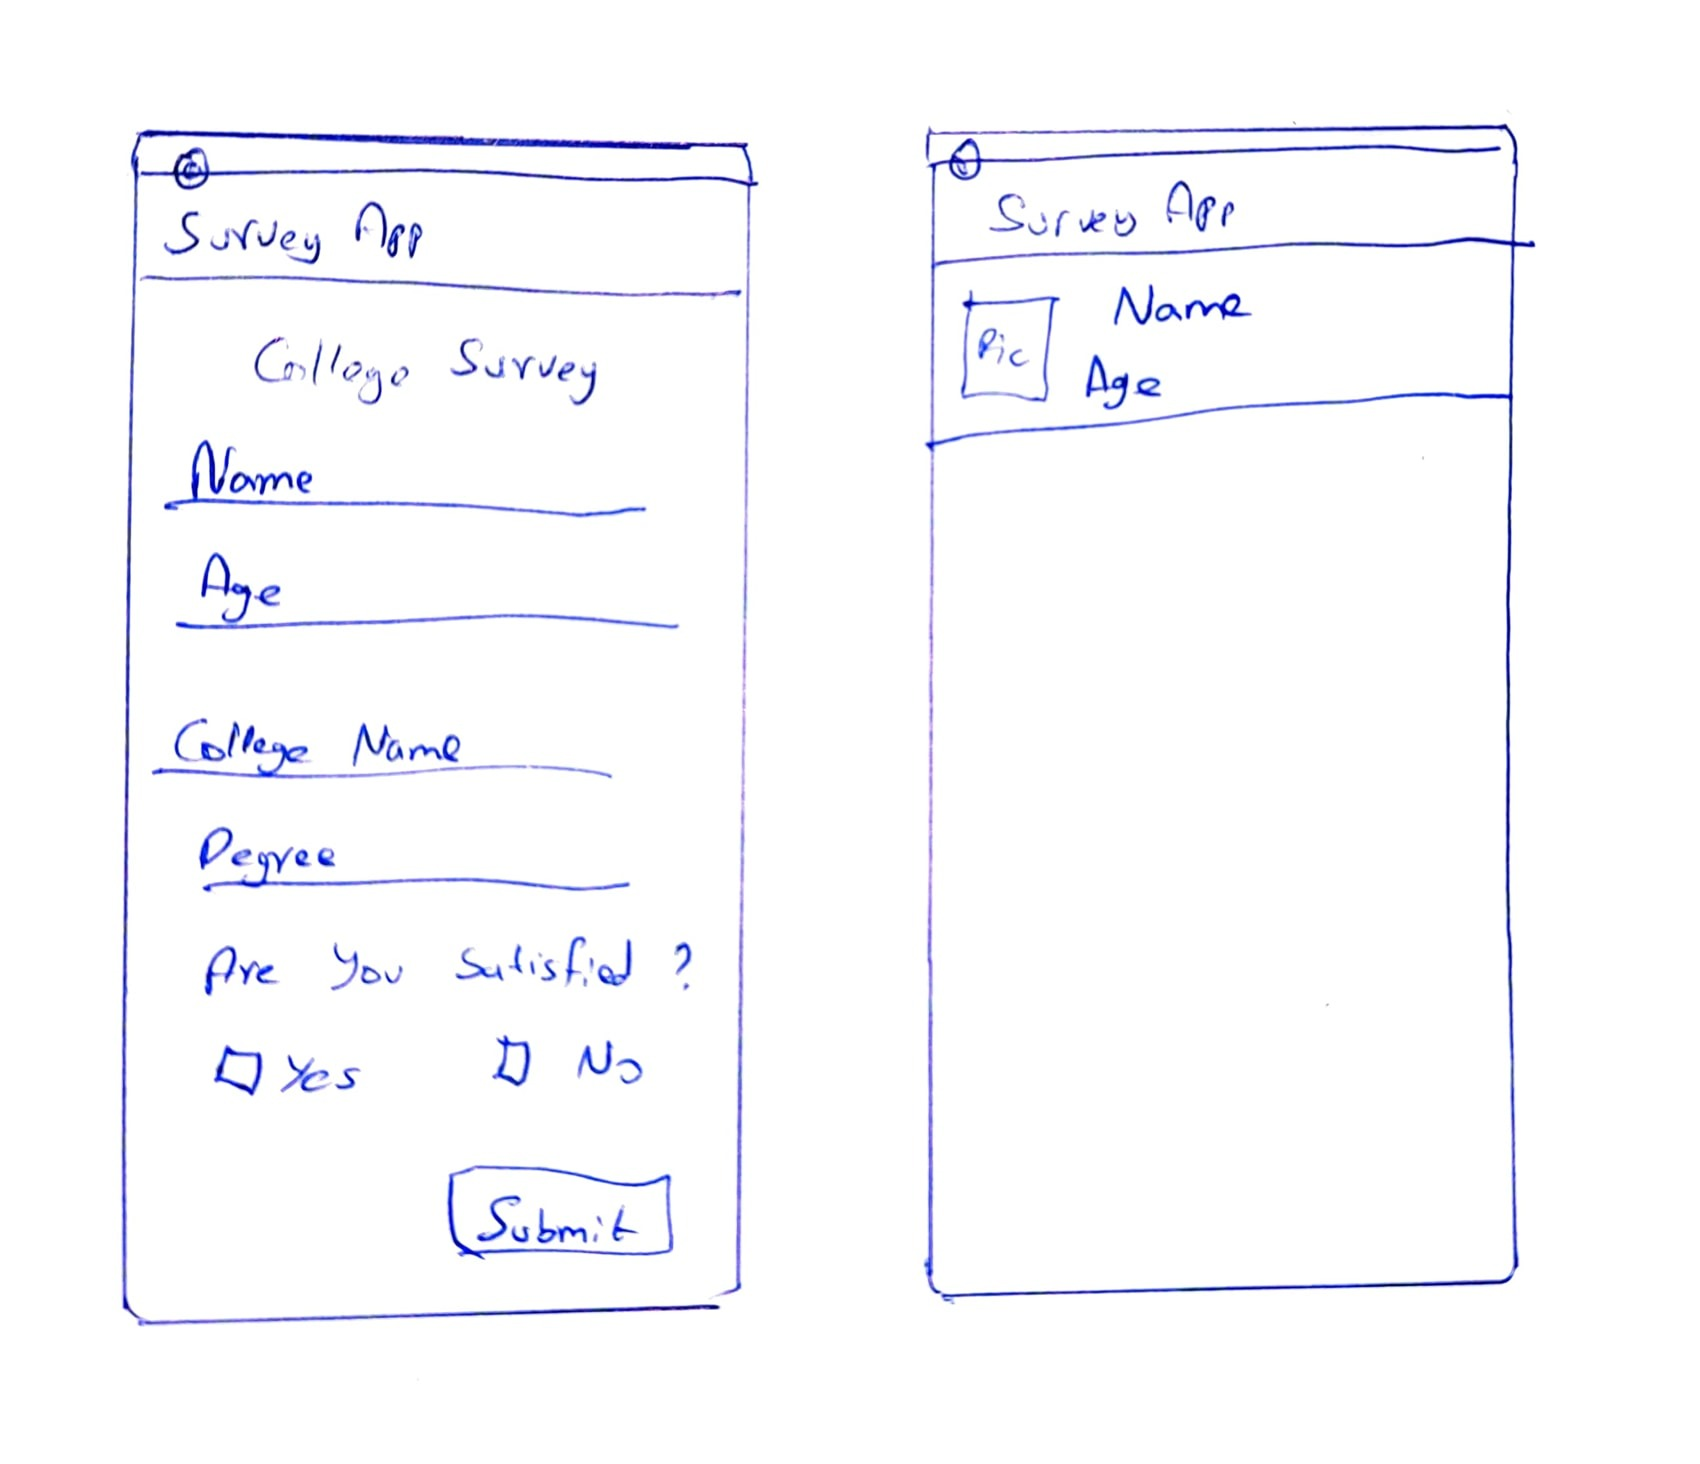 Survey App
College Survey
Name
Age
College Name
Degree
Are You Satisfied ?
Yes No
Submit
Survey App
Pic
Name
Age